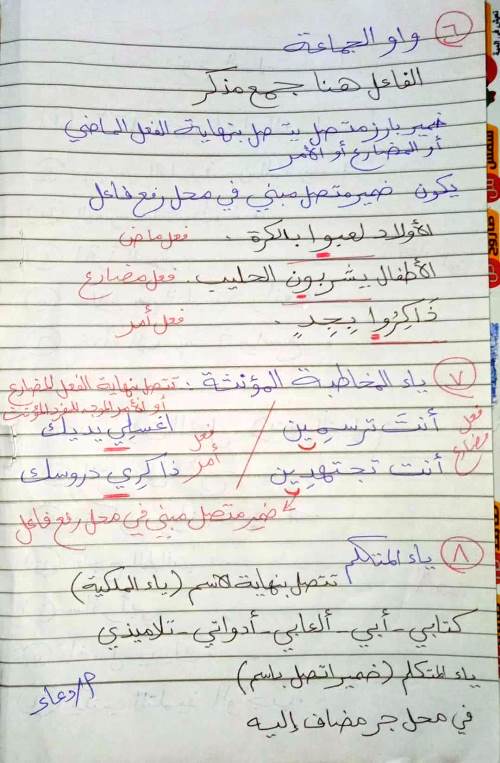 ٦ واو الجماعة
الفاعل هنا جمع مذكر
ضمير بارز متصل يتصل بنهاية الفعل الماضي
أو المضارع أو الأمر
يكون ضمير متصل مبني في محل رفع فاعل
الأولاد لعبوا بالكرة . فعل ماض
الأطفال يشربون الحليب . فعل مضارع
ذَاكِرُوا بِجِدٍ . فعل أمر
٧ ياء المخاطبة المؤنثة : تتصل بنهاية الفعل المضارع
أو الأمر الموجه للمفرد المؤنث
أنتَ ترسمين / اغسلي يديك
فعل مضارع
فعل أمر
أنت تجتهدين ذاكري دروسك
ضمير متصل مبني في محل رفع فاعل
٨ ياء المتكلم
تتصل بنهاية الاسم (ياء الملكية)
كتابي - أبي - ألعابي - أدواتي - تلاميذي
ياء المتكلم (ضمير اتصل باسم)
في محل جر مضاف إليه
م/دعاء